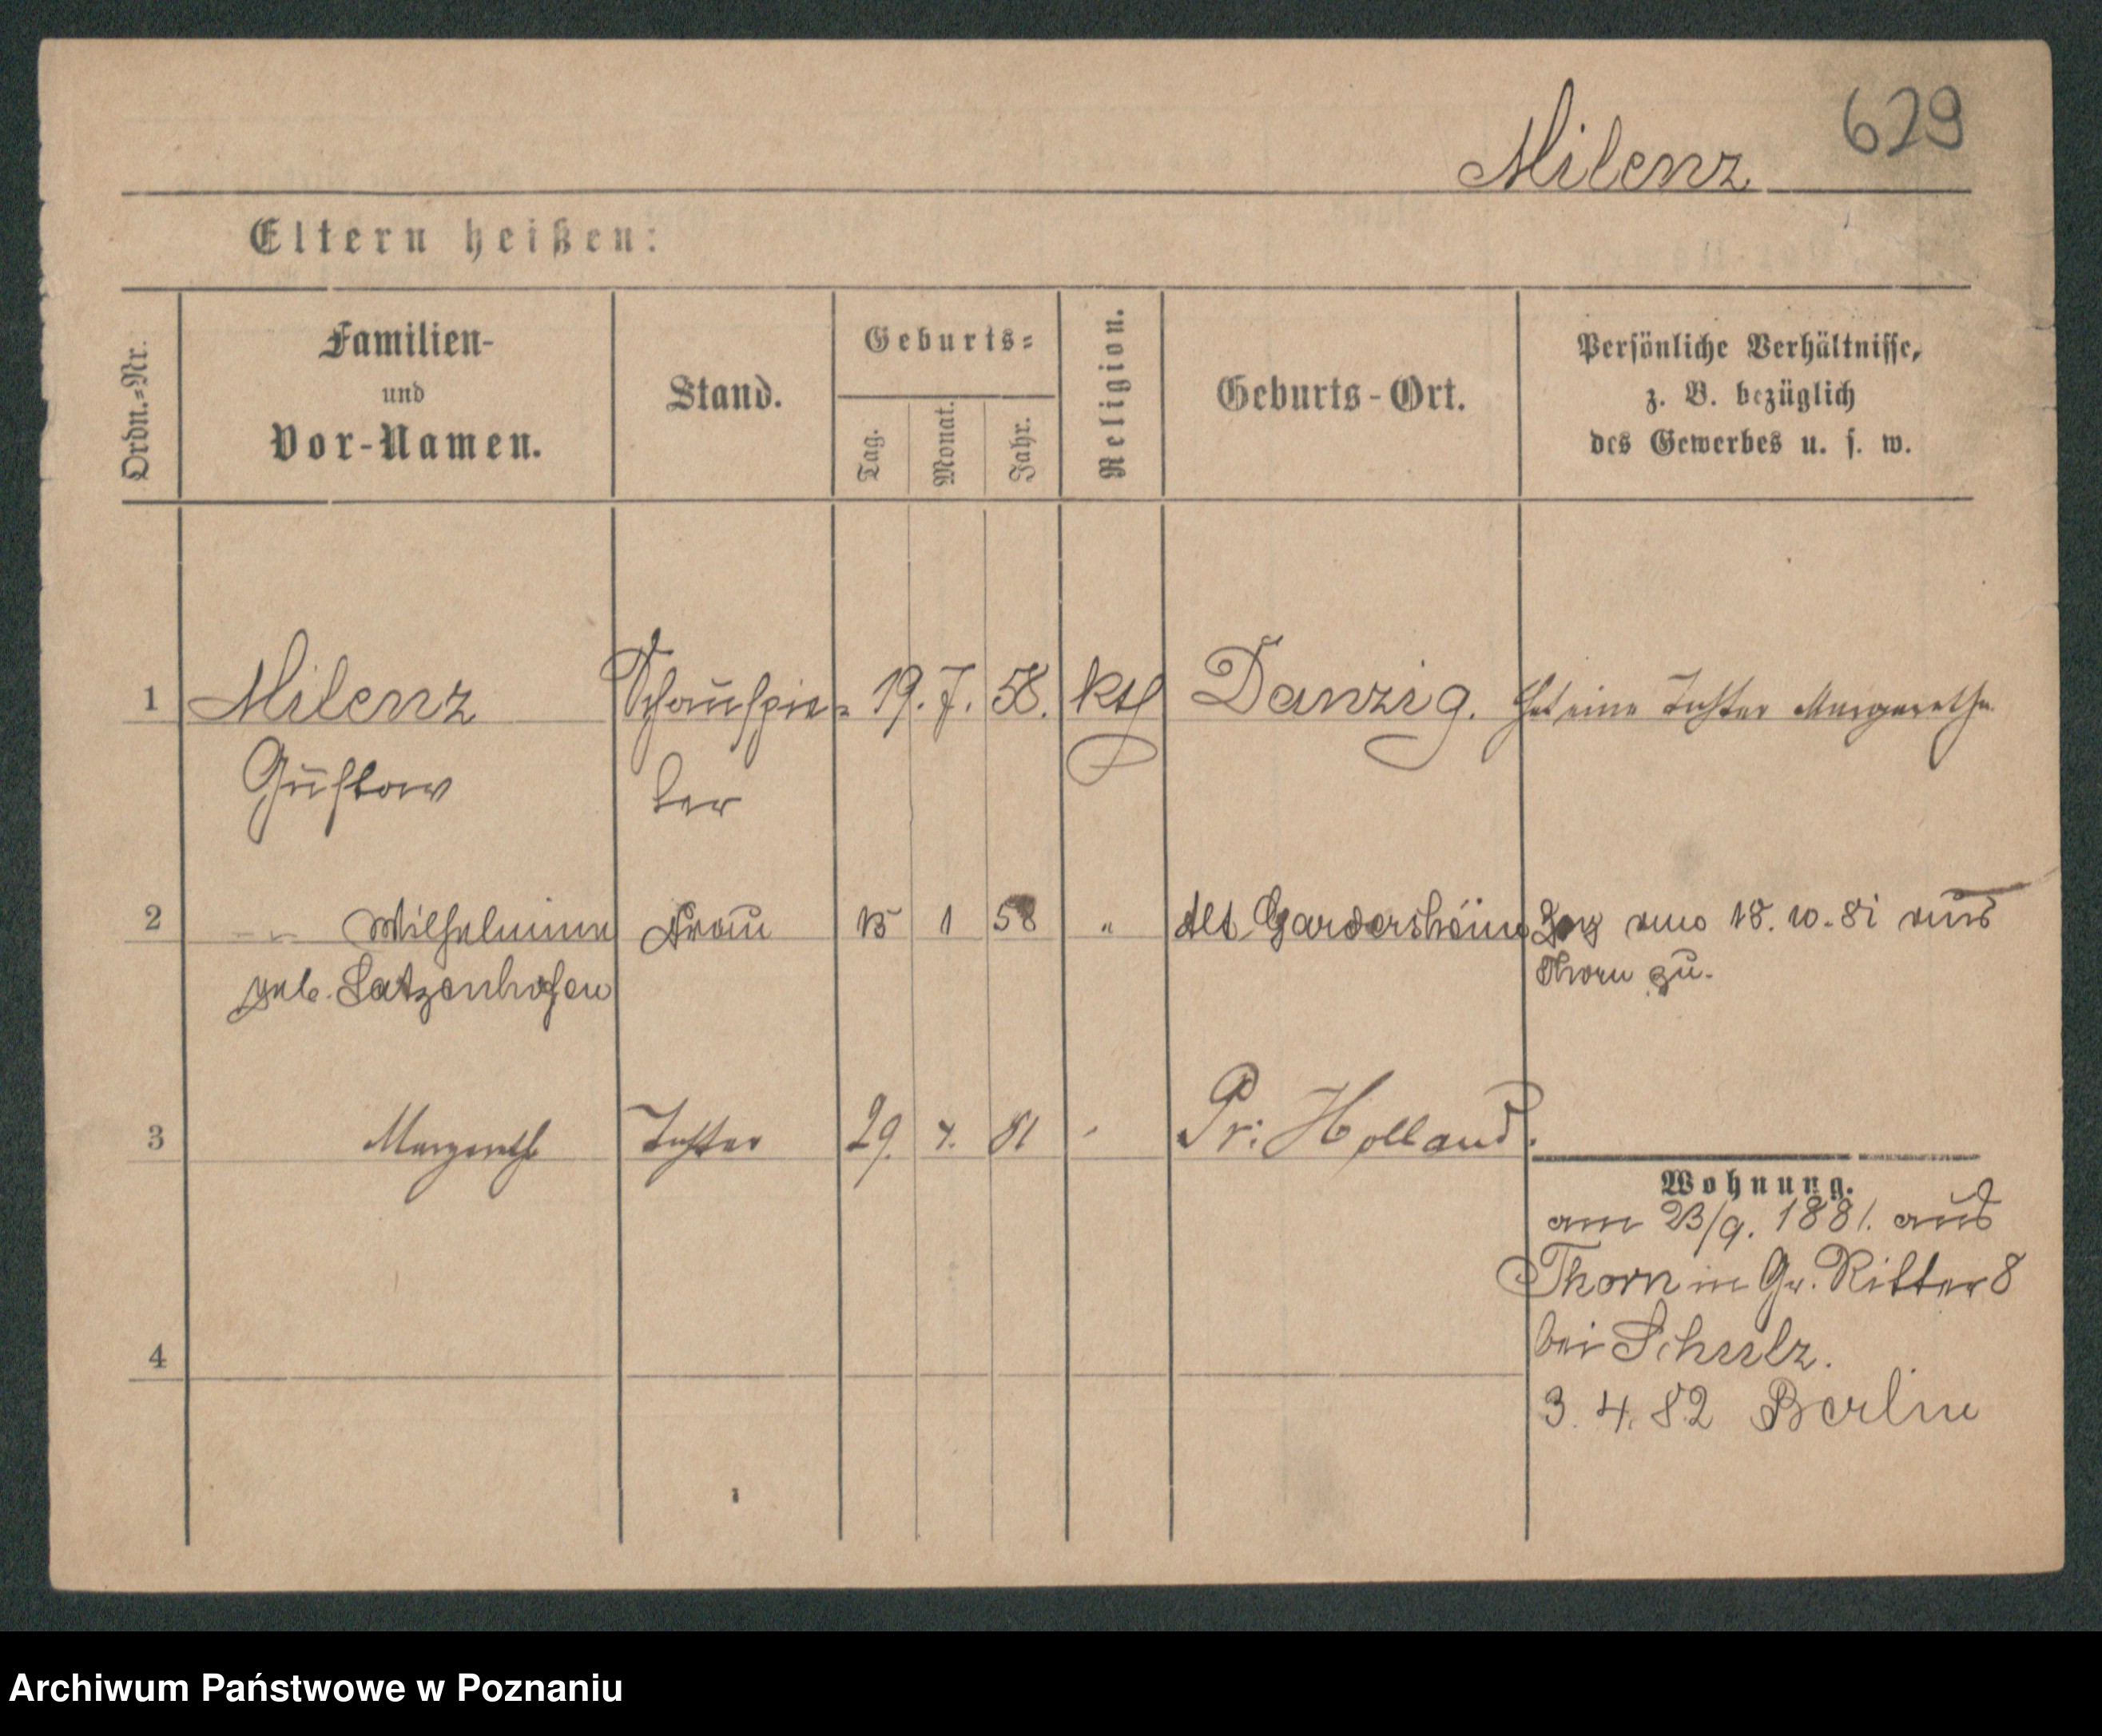 629
Milenz
Eltern heißen:
Ordn.=Nr.
Familien-
und
Vor-Namen.
Stand.
Geburts=
Tag.
Monat.
Jahr.
Religion.
Geburts-Ort.
Persönliche Verhältnisse,
z. B. bezüglich
des Gewerbes u. s. w.
1 Milenz Schauspie= 19. 7. 58. kth Danzig. hat eine Tochter Margarethe
Gustav ler
2 " Wilhelmine Frau 15 1 58 " Alt 18. 10. 81 aus
geb. Latzenhofen Thorn zu.
3 Margareth Tochter 29. 4. 81 Pr: Holland.
Wohnung.
am 23/9. 1881. aus
Thorn in Gr. Ritter 8
bei Schulz.
4
3. 4. 82 Berlin
Archiwum Państwowe w Poznaniu